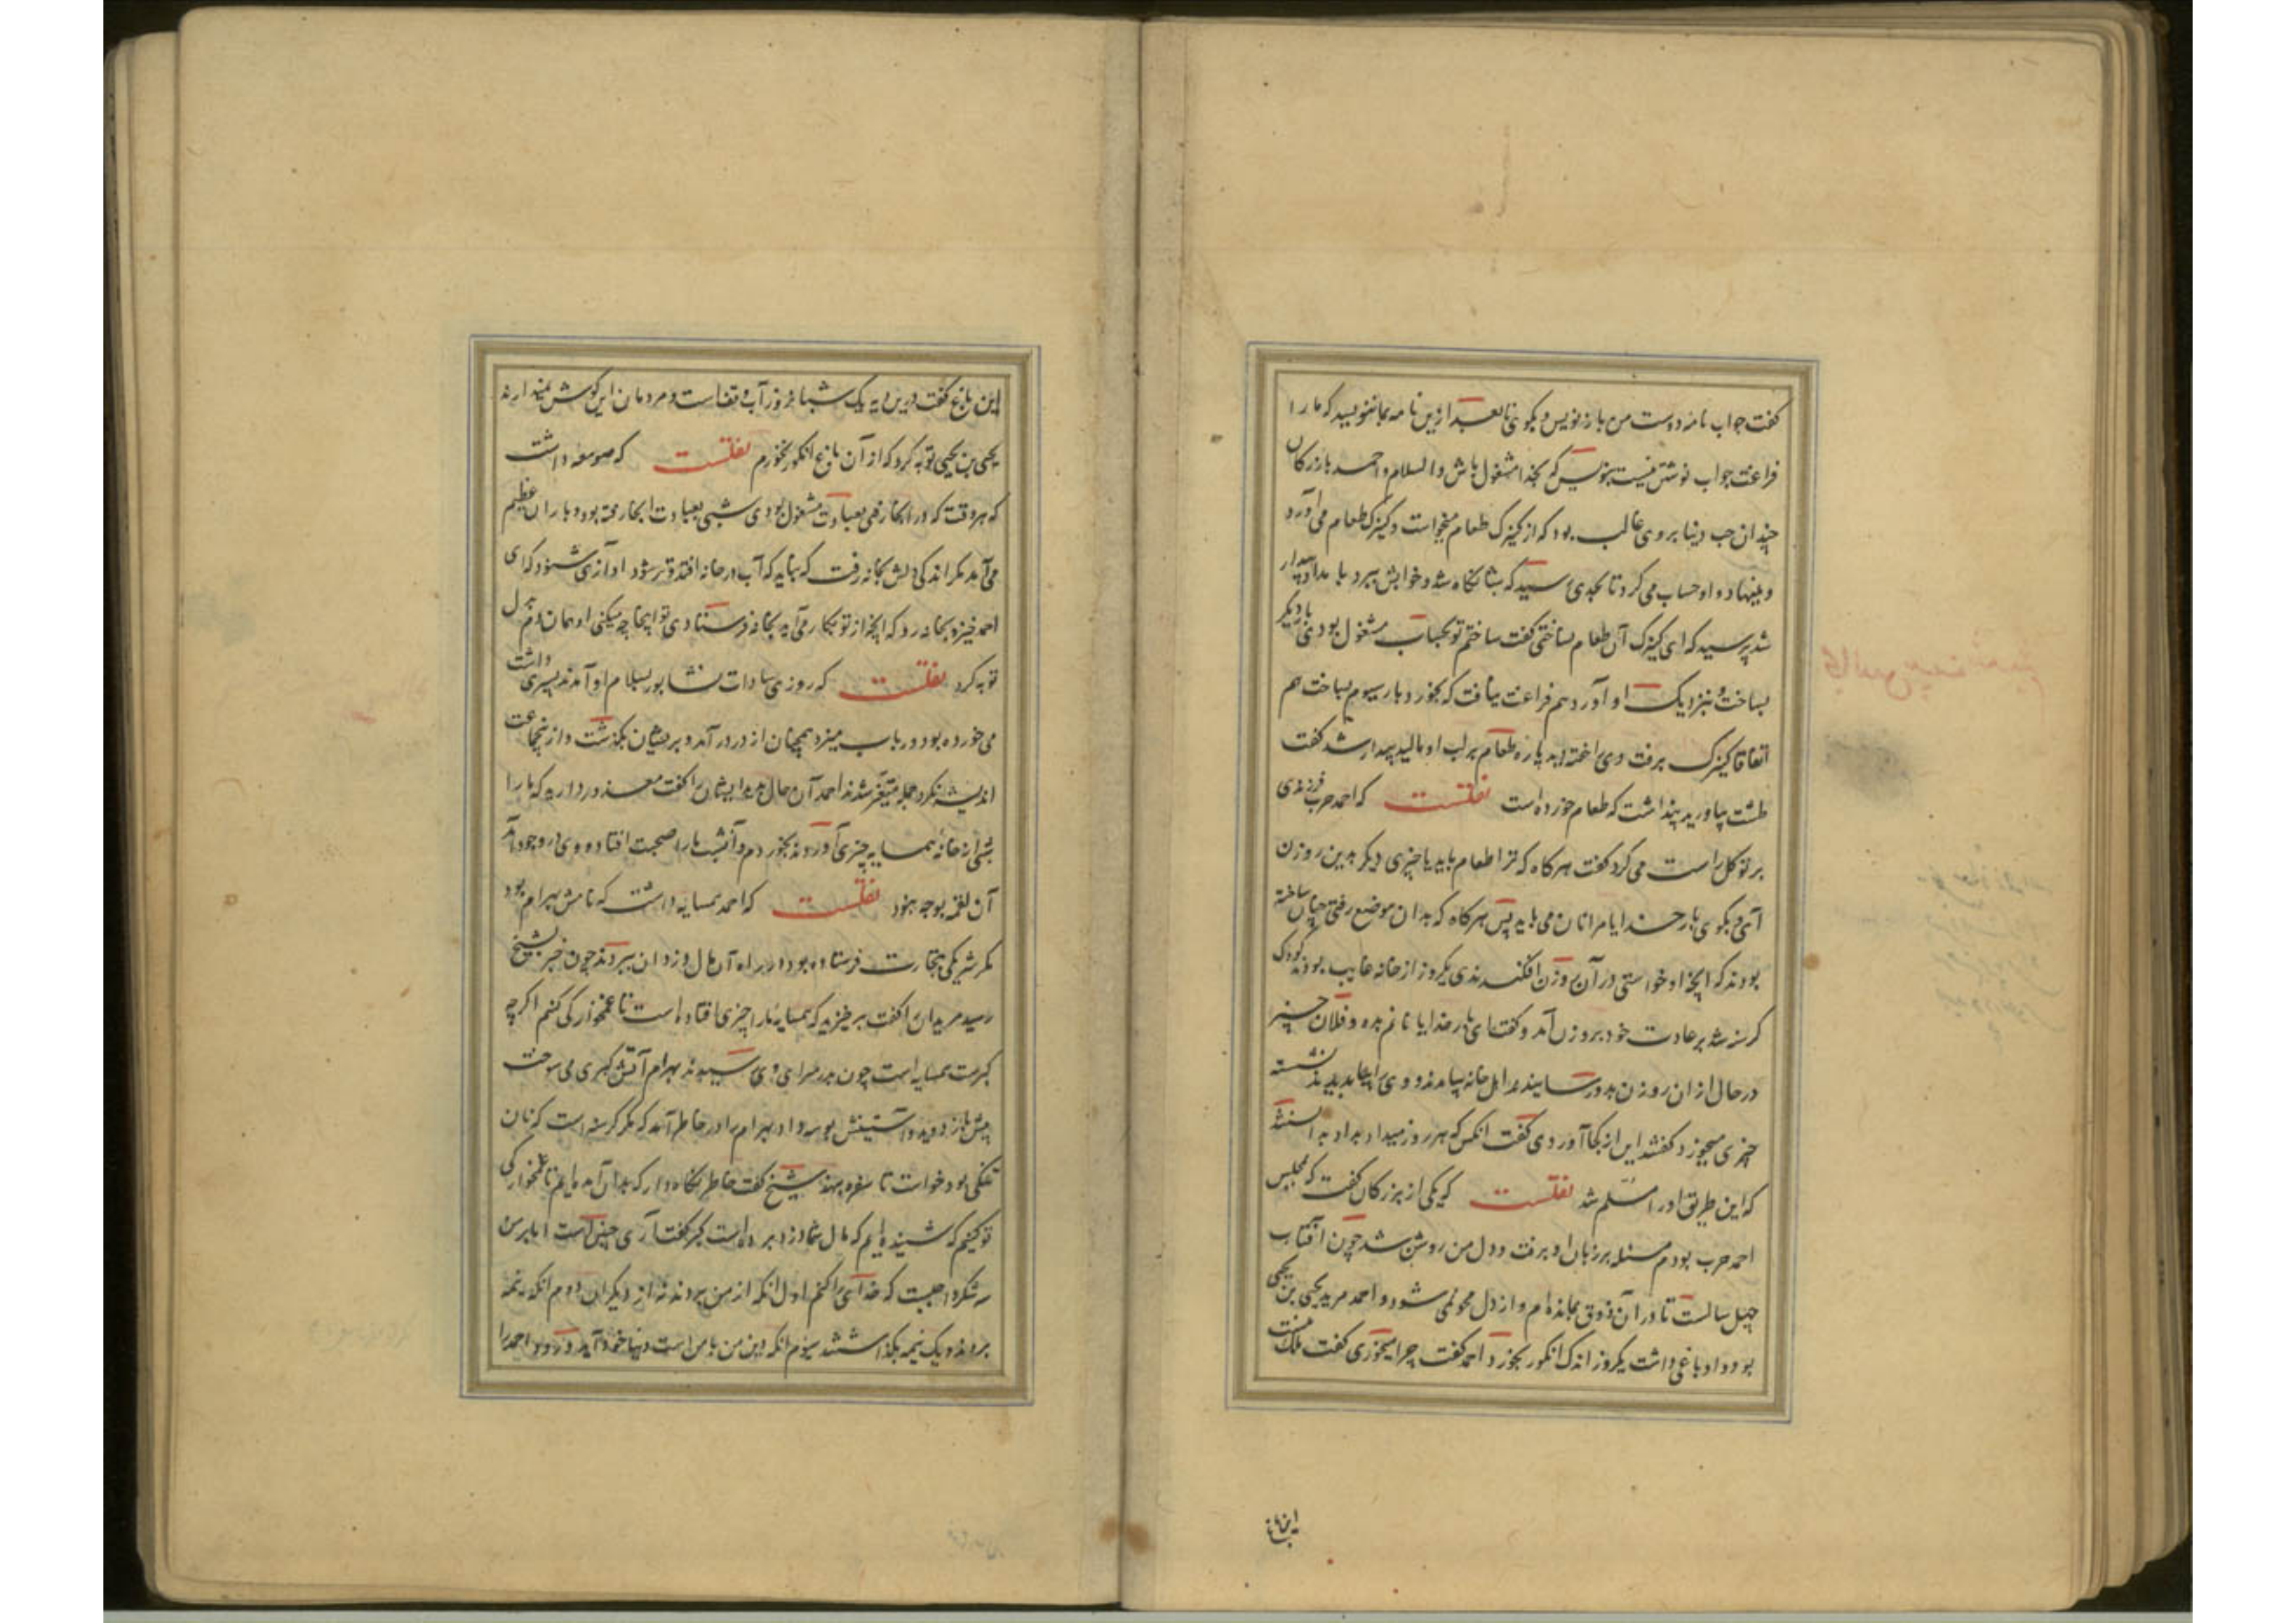 گفت جواب نامه دوست من باز نویس و بگوی تا بعد ازین نامه بما ننویسید که ما را
فراغت جواب نوشتن نیست بنویس که بخدا مشغول باش والسلام و احمد بازرکان
چندان حب دنیا بر وی غالب بود که از کنیزک طعام میخواست و کنیزک طعام می آورد
و بنهاد و او حساب می کرد تا بحدی رسید که شبانگاه شد و خوابش ببرد بامداد بیدار
شد پرسید که ای کنیزک آن طعام نساختی گفت ساختم تو بحساب مشغول بودی بار دیگر
بساخت و بنزدیک او آورد هم فراغت نیافت که بخورد بار سیوم بساخت هم
اتفاقا کنیزک برفت وی را خفته دید پاره طعام بر لب او مالید بیدار شد گفت
طشت بیاورید پنداشت که طعام خورده است نقلست که احمد حرب فرزندی
بر توکل راست می کرد گفت هر کاه که ترا طعام باید یا چیزی دیگر بدین روزن
آی و بگوی بار خدایا مرا نان می باید پس هر کاه که بدان موضع رفتی چنان ساخته
بودند که آنچه او خواستی در آن روزن افکندندی یکروز از خانه غایب بودند کودک
گرسنه شد بر عادت خود بروزن آمد و گفت ای بار خدایا نانم بده و فلان چیز
در حال از ان روزن بدو رسانیدند اهل خانه بیامدند و وی را بدیدند نشسته
چیزی میخورد گفتند این از کجا آوردی گفت انکس که هر روز میداد بداد بدانستند
که این طریق او را مسلم شد نقلست که یکی از بزرکان گفت که بمجلس
احمد حرب بودم مسئله بر زبان او برفت و دل من روشن شد چون آفتاب
چهل سالست تا در آن ذوق بمانده ام و از دل محو نمی شود و احمد مرید یحیی بن یحیی
بود و او باغی داشت یکروز اندک انکور بخورد احمد گفت چرا میخوری گفت ملک منست
این باغ
این باغ گفت درین دیه یک شبانروز آب وقفاست و مردمان این گوش نمیدارند
یحیی بن یحیی توبه کرد که از آن باغ انکور نخورم نقلست که صومعه داشت
که هر وقت که در انجا رفتی بعبادت مشغول بودی شبی بعبادت انجا رفته بود و باران عظیم
می آمد مکر اندکی دلش بخانه رفت که نباید که آب در خانه افتد و تر شود آوازی شنود که ای
احمد خیز و بخانه رو که آنچه از تو بکار می آید بخانه فرستادی تو اینجا چه میکنی او همان دم بدل
توبه کرد نقلست که روزی سادات نشابور بسلام او آمدند پسری داشت
می خورده بود و رباب میزد همچنان از در در آمد و بر ایشان بگذشت و از انجماعت
اندیشه نکرد جمله متغیر شدند احمد آن حال بدید ایشان را گفت معذور دارید که ما را
شبی از خانه همسایه چیزی آوردند بخوردم و آنشب ما را صحبت افتاد و وی در وجود آمد
آن لقمه بوجه نبود نقلست که احمد همسایه داشت که نامش بهرام بود
مکر شریکی بتجارت فرستاده بود در راه آن مال دزدان ببردند چون خبر بشیخ
رسید مریدان را گفت برخیزید که همسایه ما را چیزی افتاده است تا غمخوارگی کنیم اگرچه
گبرست همسایه است چون بدر سرای وی رسیدند بهرام آتش گبری می سوخت
پیش باز دوید و آستینش بوسه داد بهرام را در خاطر آمد که مکر گرسنه است که نان
تنکی بود خواست تا سفره بنهد شیخ گفت خاطر نکاه دار که بدان آمده ایم تا غمخوارگی
تو کنیم که شنیده ایم که مال شما دزد برده است گبر گفت آری چنین است اما بر من
سه شکر واجبست که خدای را کنم اول انکه از من بردند نه از دیگران دوم انکه نیمه
بردند و یک نیمه بگذاشتند سیوم انکه دین من با من است دنیا خود آید و رود احمد را